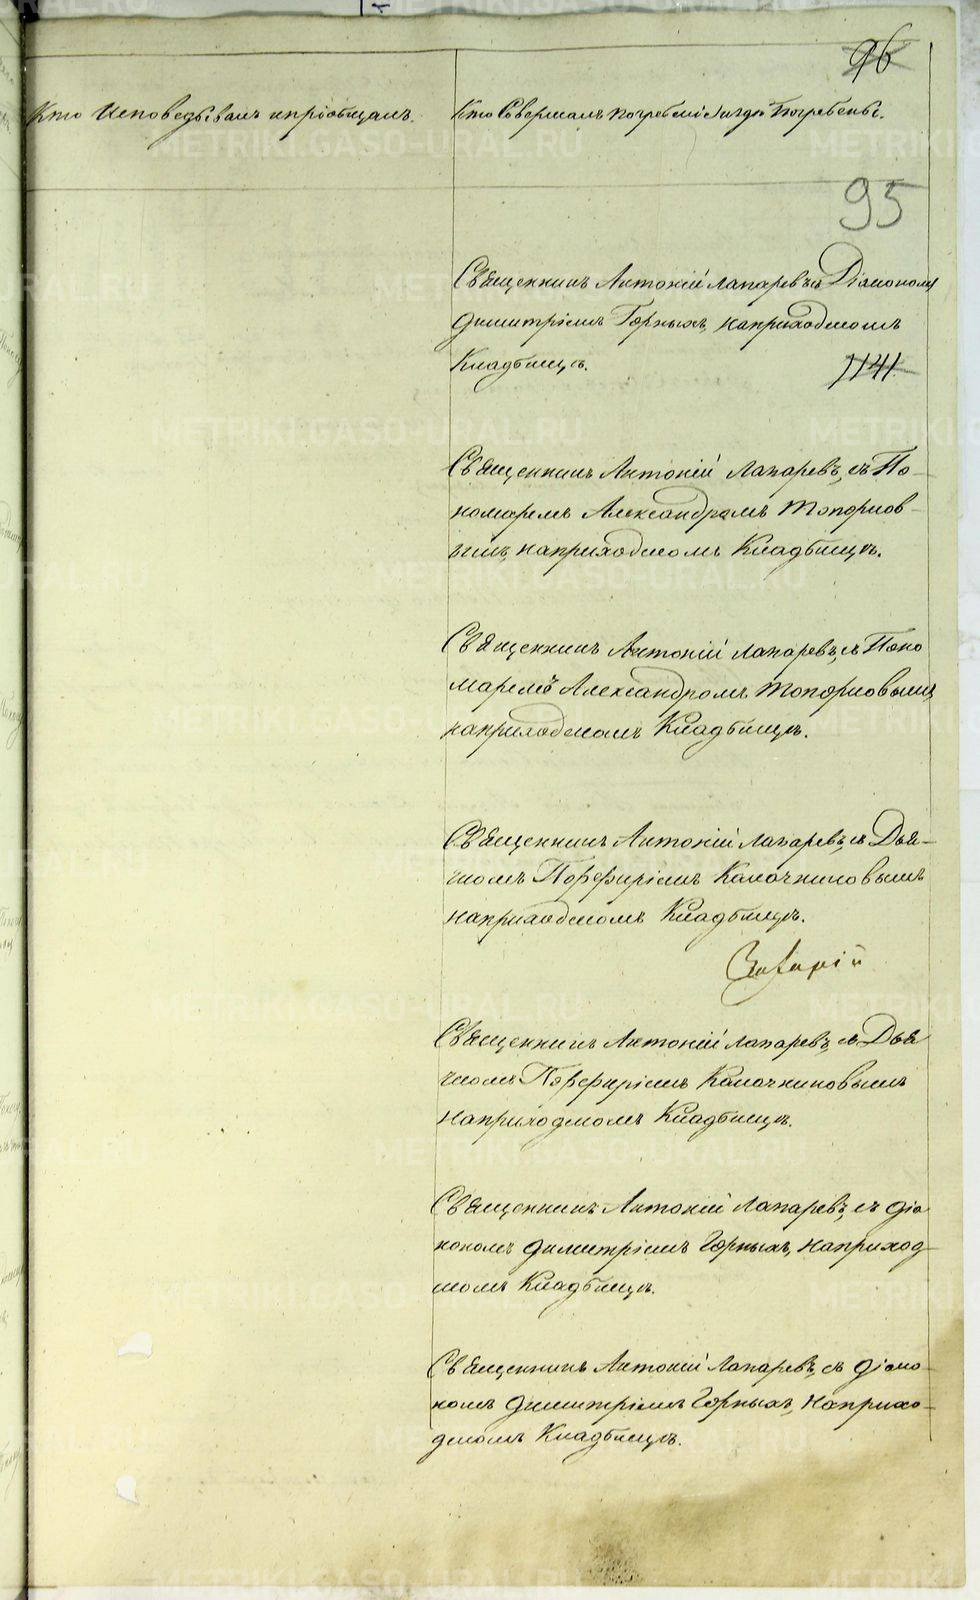 96
Кто Исповедывалъ и пріобщалъ.
Кто Совершалъ погребеніе и гдѣ Погребены.
95
Священникъ Антоній Лапаревъ съ Діакономъ
Димитріемъ Горныхъ, наприходскомъ
Кладбищѣ.
1141
Священникъ Антоній Лапаревъ, съ По-
номаремъ Александромъ Топорков-
ымъ, наприходскомъ Кладбищѣ.
Священникъ Антоній Лапаревъ, съ Поно
маремъ Александромъ Топорковымъ,
наприходскомъ Кладбищѣ.
Священникъ Антоній Лапаревъ, съ Дья-
чкомъ Порфиріемъ Калочниковымъ
наприходскомъ Кладбищѣ.
Захарій
Священникъ Антоній Лапаревъ, съ Дья
чкомъ Порфиріемъ Калочниковымъ
наприходскомъ Кладбищѣ.
Священникъ Антоній Лапаревъ, съ діа
кономъ Димитріемъ Горныхъ, наприход
скомъ Кладбищѣ.
Священникъ Антоній Лапаревъ, съ діако-
номъ Димитріемъ Горныхъ, наприхо-
дскомъ Кладбищѣ.